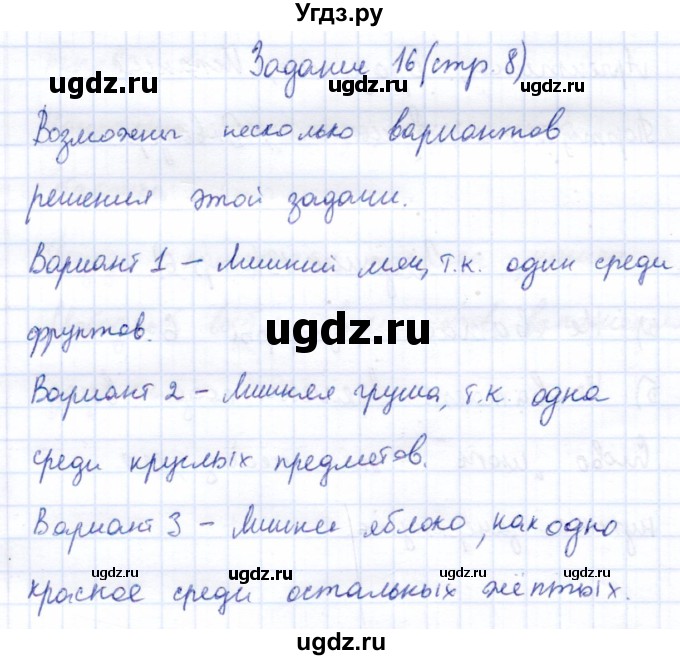 Угдз.ру
Задание 16 (стр. 8)
ugdz.ru ugdz.ru ugdz.ru
Возможны несколько вариантов
решения этой задачи.
Вариант 1 – Лишний мяч, т.к. один среди
фруктов.
ugdz.ru
Вариант 2 – Лишняя груша, т.к. одна
среди круглых предметов.
Вариант 3 – Лишнее яблоко, как одно
ugdz.ru ugdz.ru ugdz.ru
красное среди остальных жёлтых.
ugdz.ru